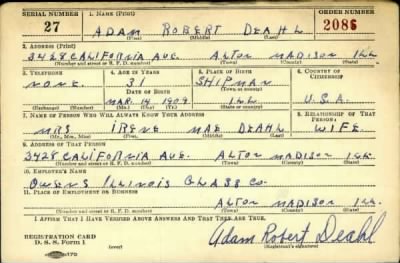 SERIAL NUMBER 1. NAME (Print) ORDER NUMBER
27 ADAM ROBERT DEAHL 2086
(First) (Middle) (Last)
2. ADDRESS (Print)
3428 CALIFORNIA AVE. ALTON MADISON ILL
(Number and street or R. F. D. number) (Town) (County) (State)
3. TELEPHONE 4. AGE IN YEARS 5. PLACE OF BIRTH 6. COUNTRY OF CITIZENSHIP
NONE 31 SHIPMAN
DATE OF BIRTH (Town or county)
MAR. 14 1909 ILL U.S.A.
(Exchange) (Number) (Mo.) (Day) (Yr.) (State or country)
7. NAME OF PERSON WHO WILL ALWAYS KNOW YOUR ADDRESS 8. RELATIONSHIP OF THAT PERSON
MRS IRENE MAE DEAHL WIFE
(Mr., Mrs., Miss) (First) (Middle) (Last)
9. ADDRESS OF THAT PERSON
3428 CALIFORNIA AVE. ALTON MADISON ILL
(Number and street or R. F. D. number) (Town) (County) (State)
10. EMPLOYER'S NAME
OWENS ILLINOIS GLASS CO.
11. PLACE OF EMPLOYMENT OR BUSINESS
ALTON MADISON ILL
(Number and street or R. F. D. number) (Town) (County) (State)
I AFFIRM THAT I HAVE VERIFIED ABOVE ANSWERS AND THAT THEY ARE TRUE.
REGISTRATION CARD
D. S. S. Form 1 (over) Adam Robert Deahl
(Registrant's signature)